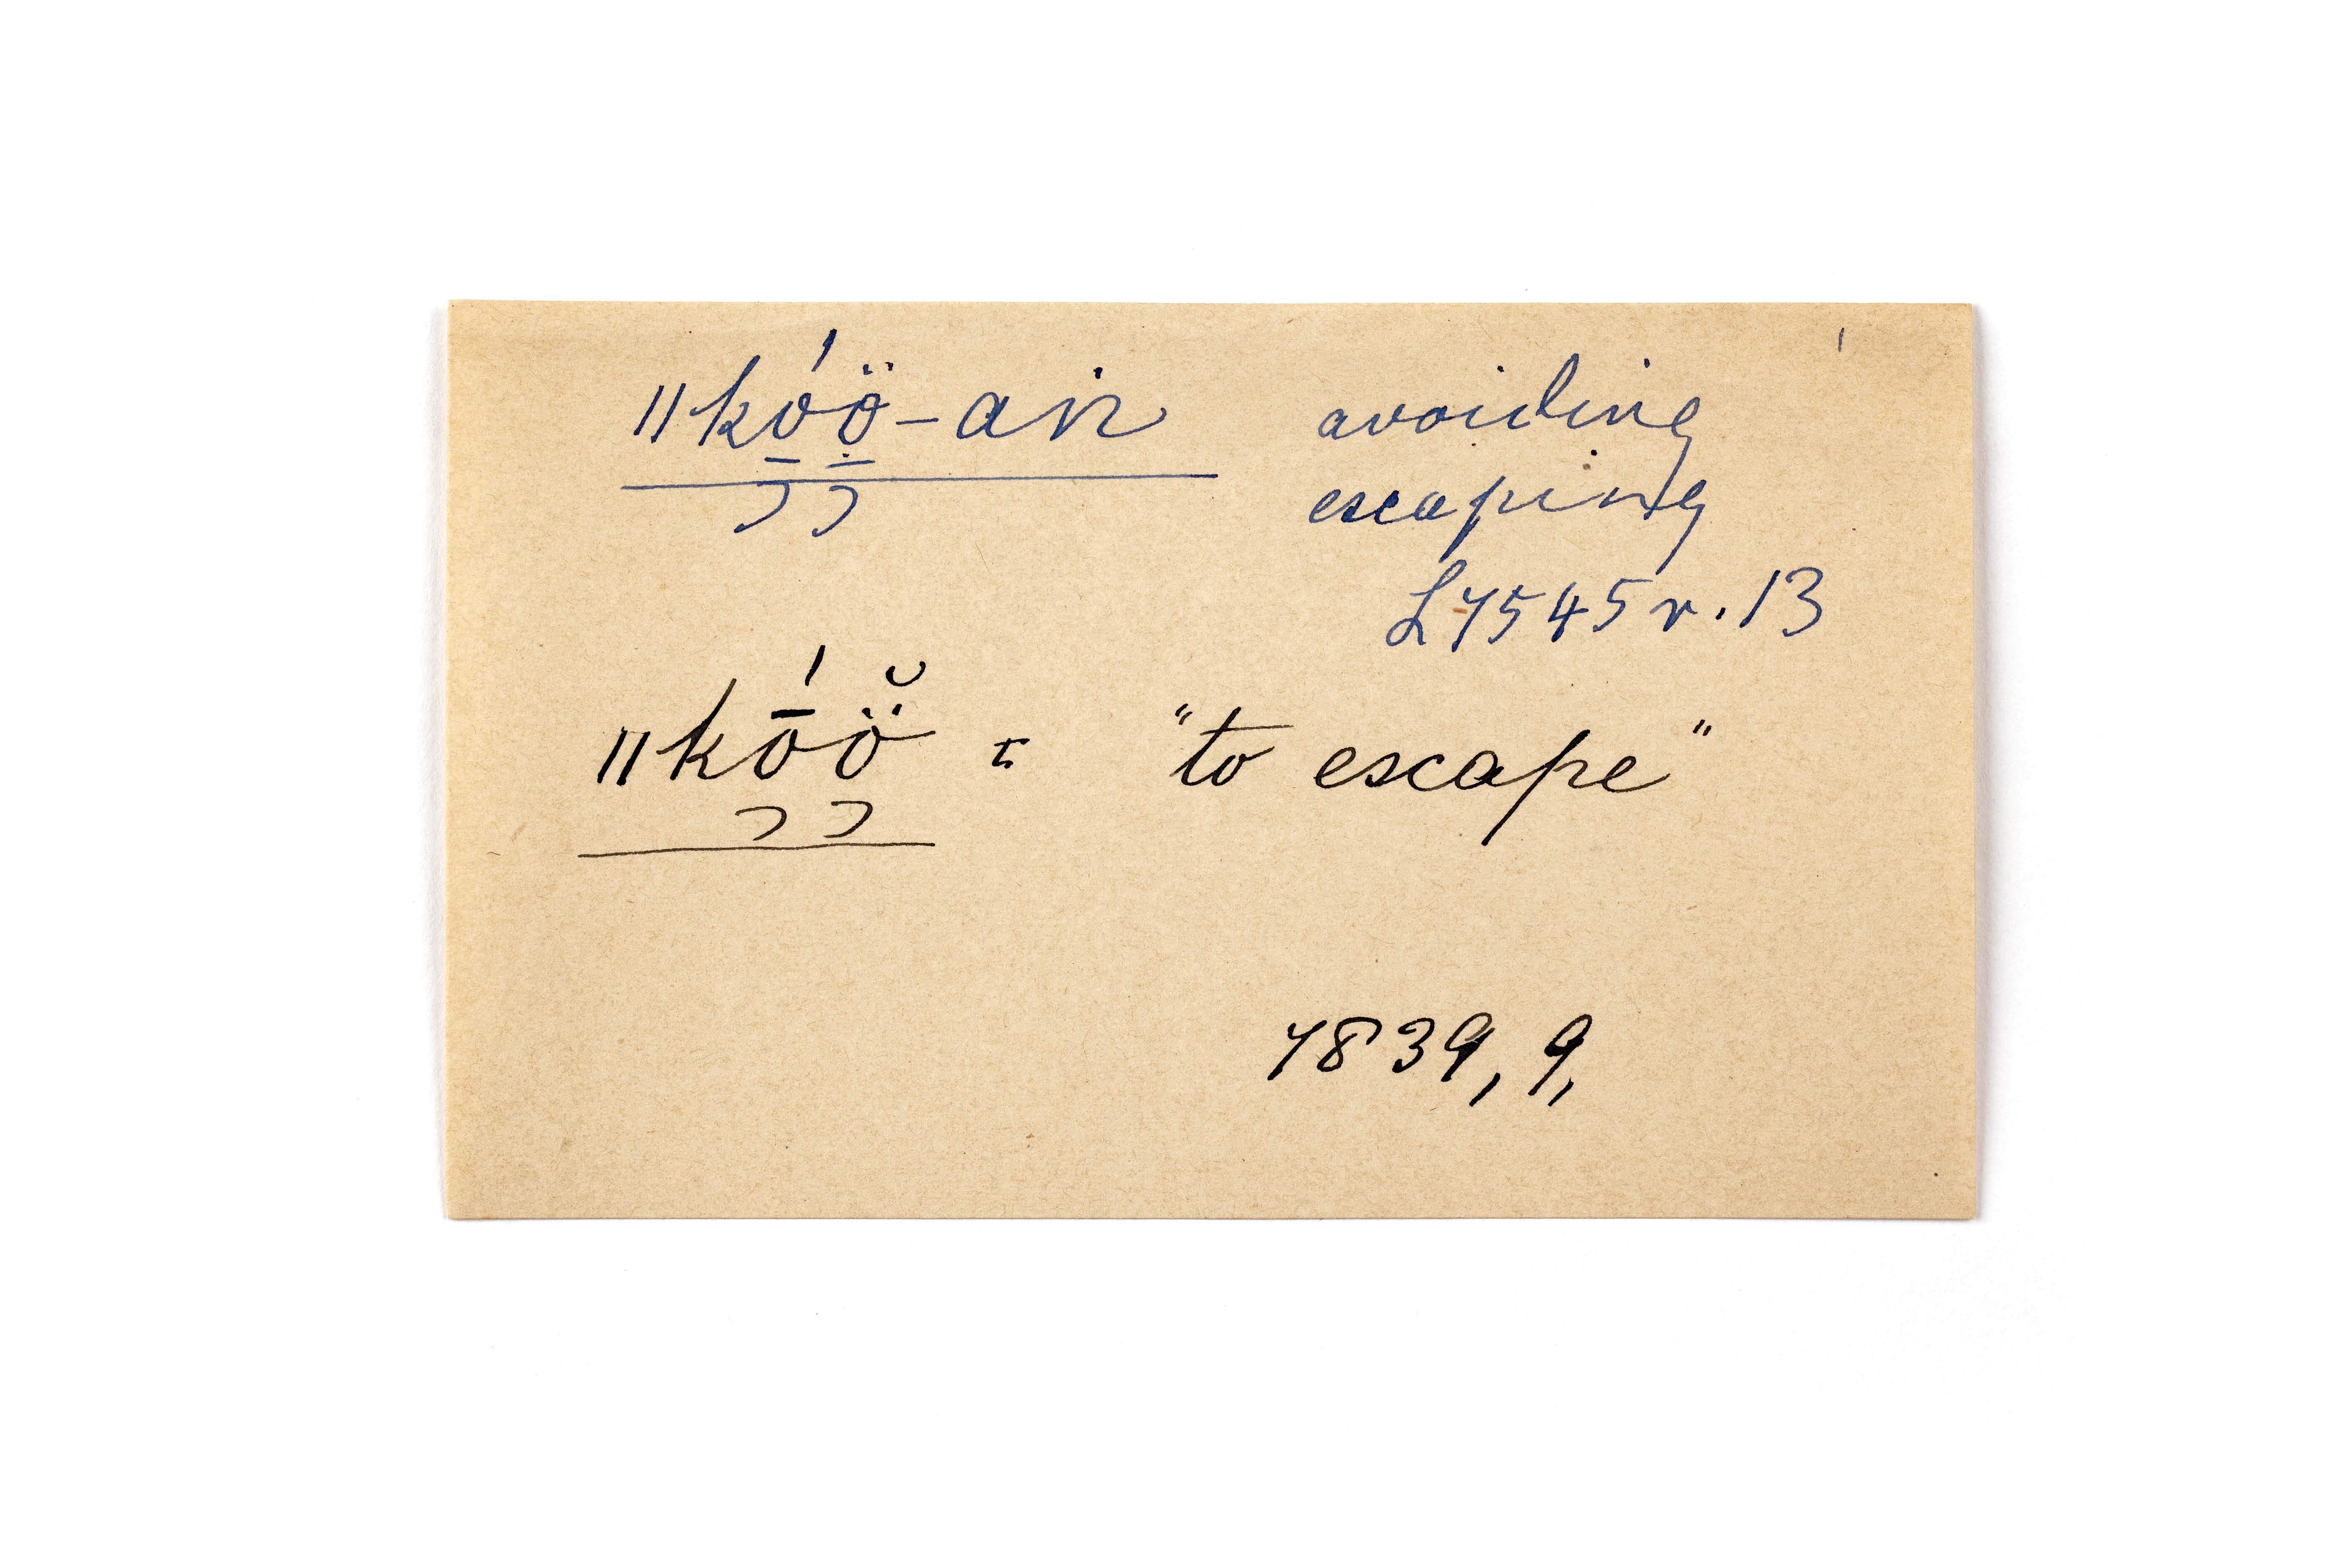 ǁkó̱ö̱-ain avoiding
escaping
L7545 r. 13
ǁkṓö̆ = "to escape"
7839, 9,